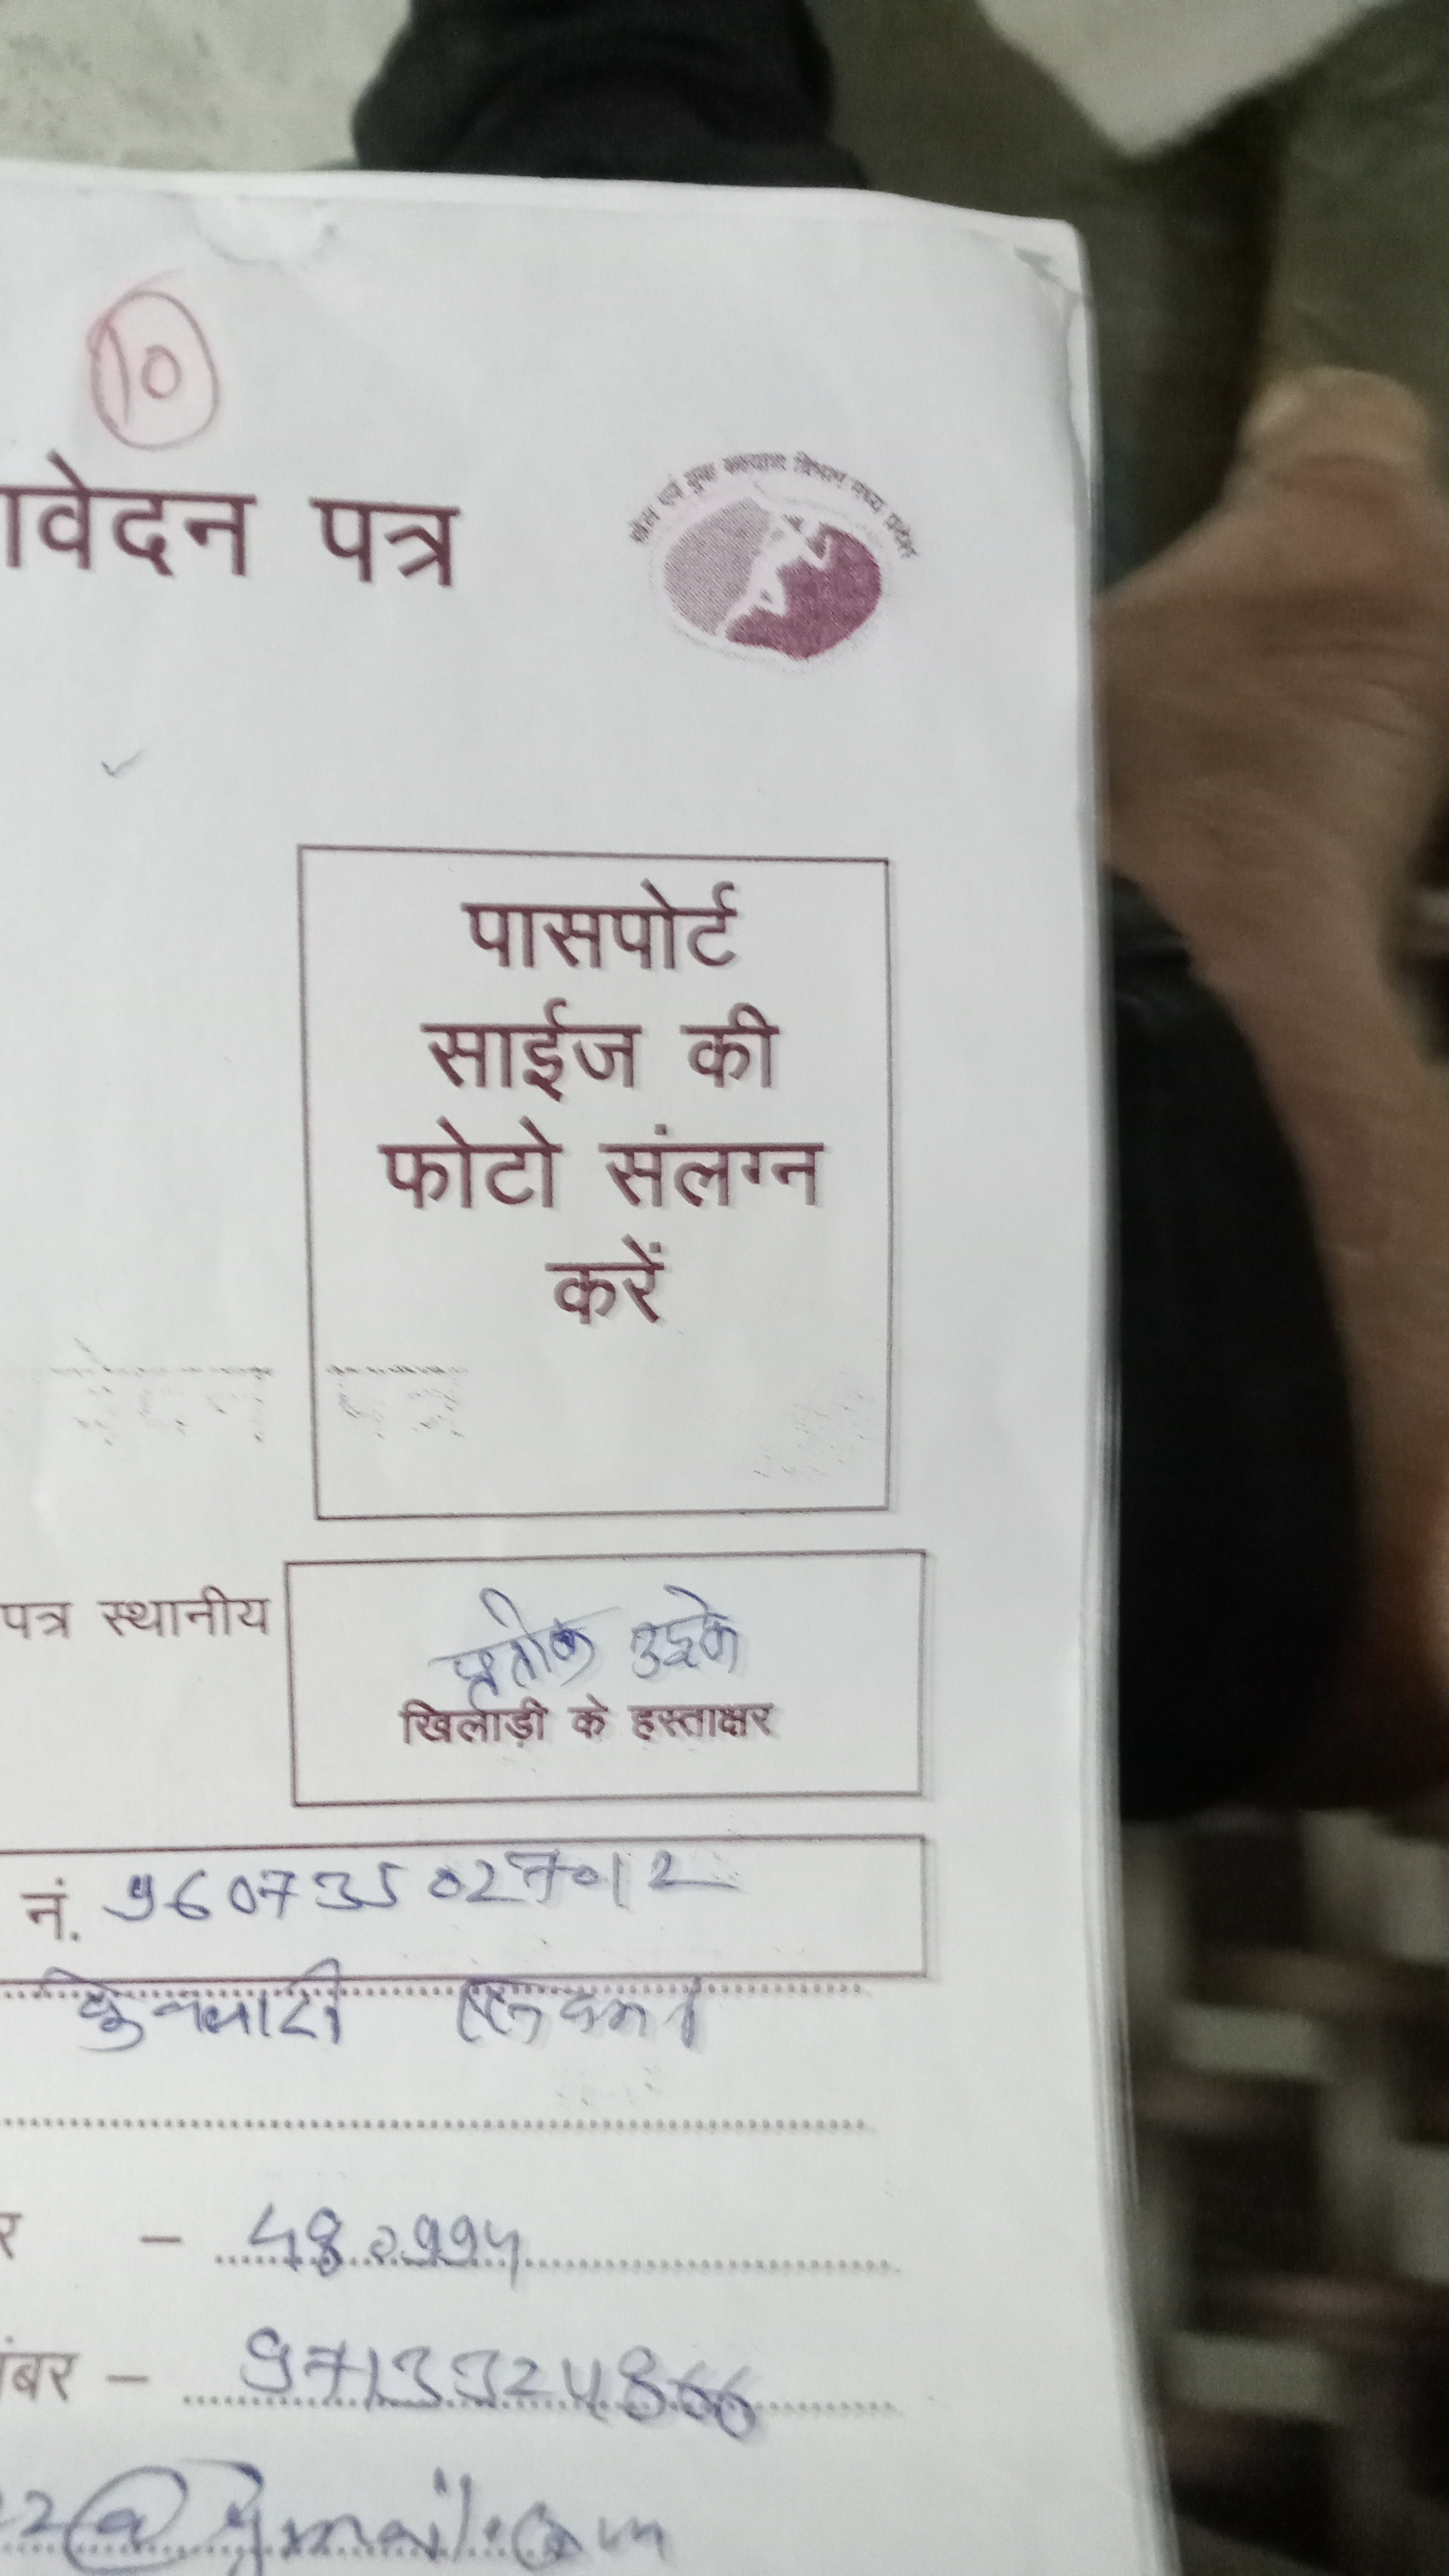 10
ावेदन पत्र
खेल एवं युवा कल्याण विभाग मध्य प्रदेश
पासपोर्ट
साईज की
फोटो संलग्न
करें
पत्र स्थानीय
प्रतीक उइके
खिलाड़ी के हस्ताक्षर
नं. 960735027012
र –
ंबर – 9713324866
2@gmail.com